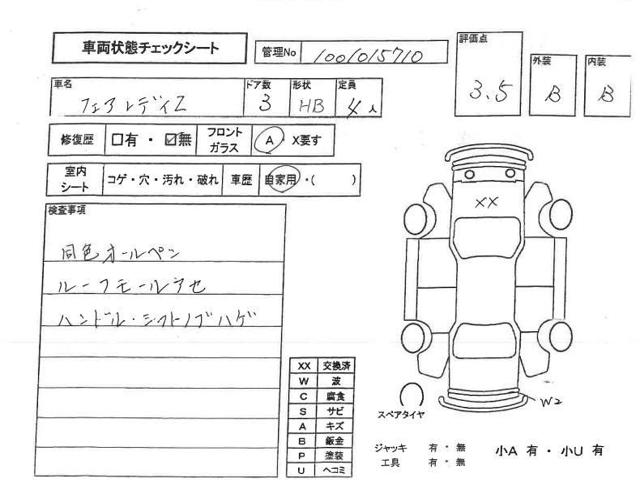 車両状態チェックシート 管理No 1001015710 評価点 3.5 外装 B 内装 B
車名 フェアレディZ ドア数 3 形状 HB 定員 4人
修復歴 □有・☑無 フロントガラス A・X要す
室内シート コゲ・穴・汚れ・破れ 車歴 自家用・( )
検査事項
同色オールペン
ルーフモールアセ
ハンドル・シフトノブハゲ
XX
XX 交換済
W 波
C 腐食
S サビ
A キズ
B 鈑金
P 塗装
U ヘコミ
W2
スペアタイヤ
ジャッキ 有・無
工具 有・無
小A 有・小U 有